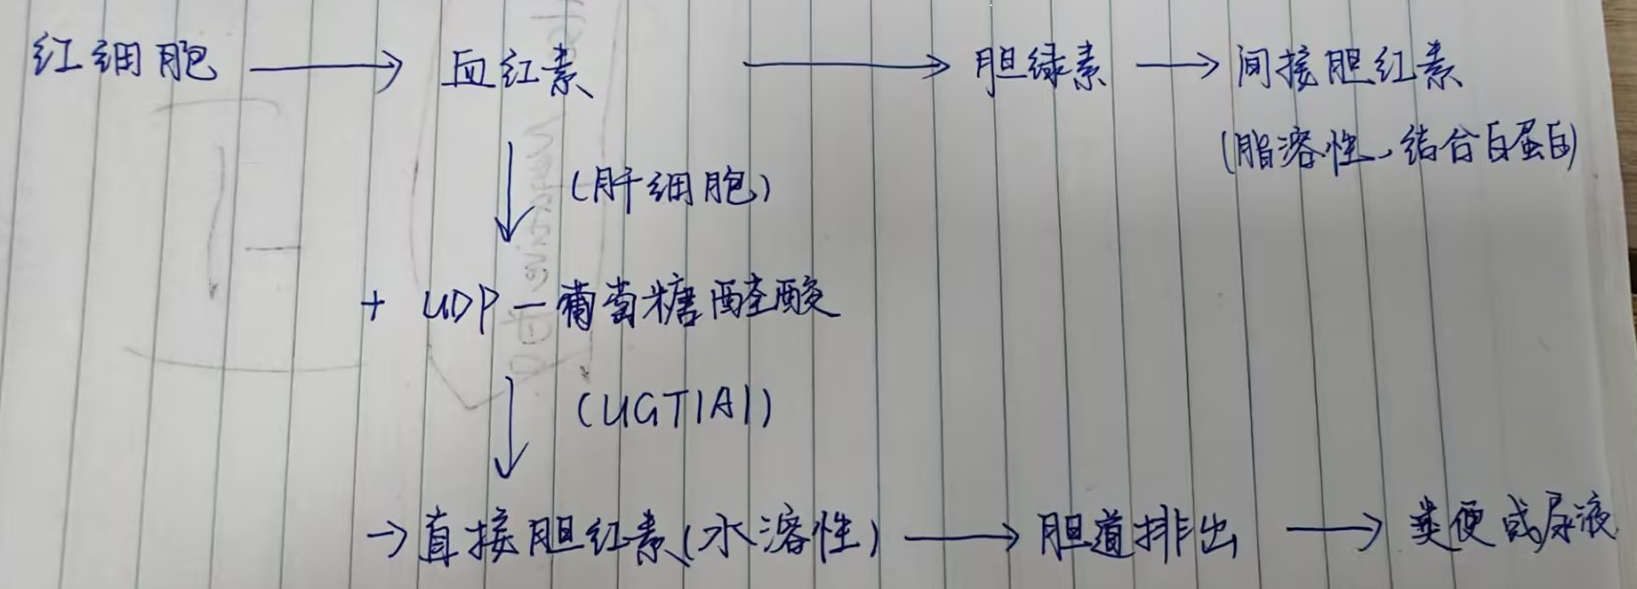 红细胞 → 血红素 → 胆绿素 → 间接胆红素
(脂溶性、结合白蛋白)
↓ (肝细胞)
+ UDP-葡萄糖醛酸
↓ (UGT1A1)
→直接胆红素(水溶性) → 胆道排出 → 粪便或尿液